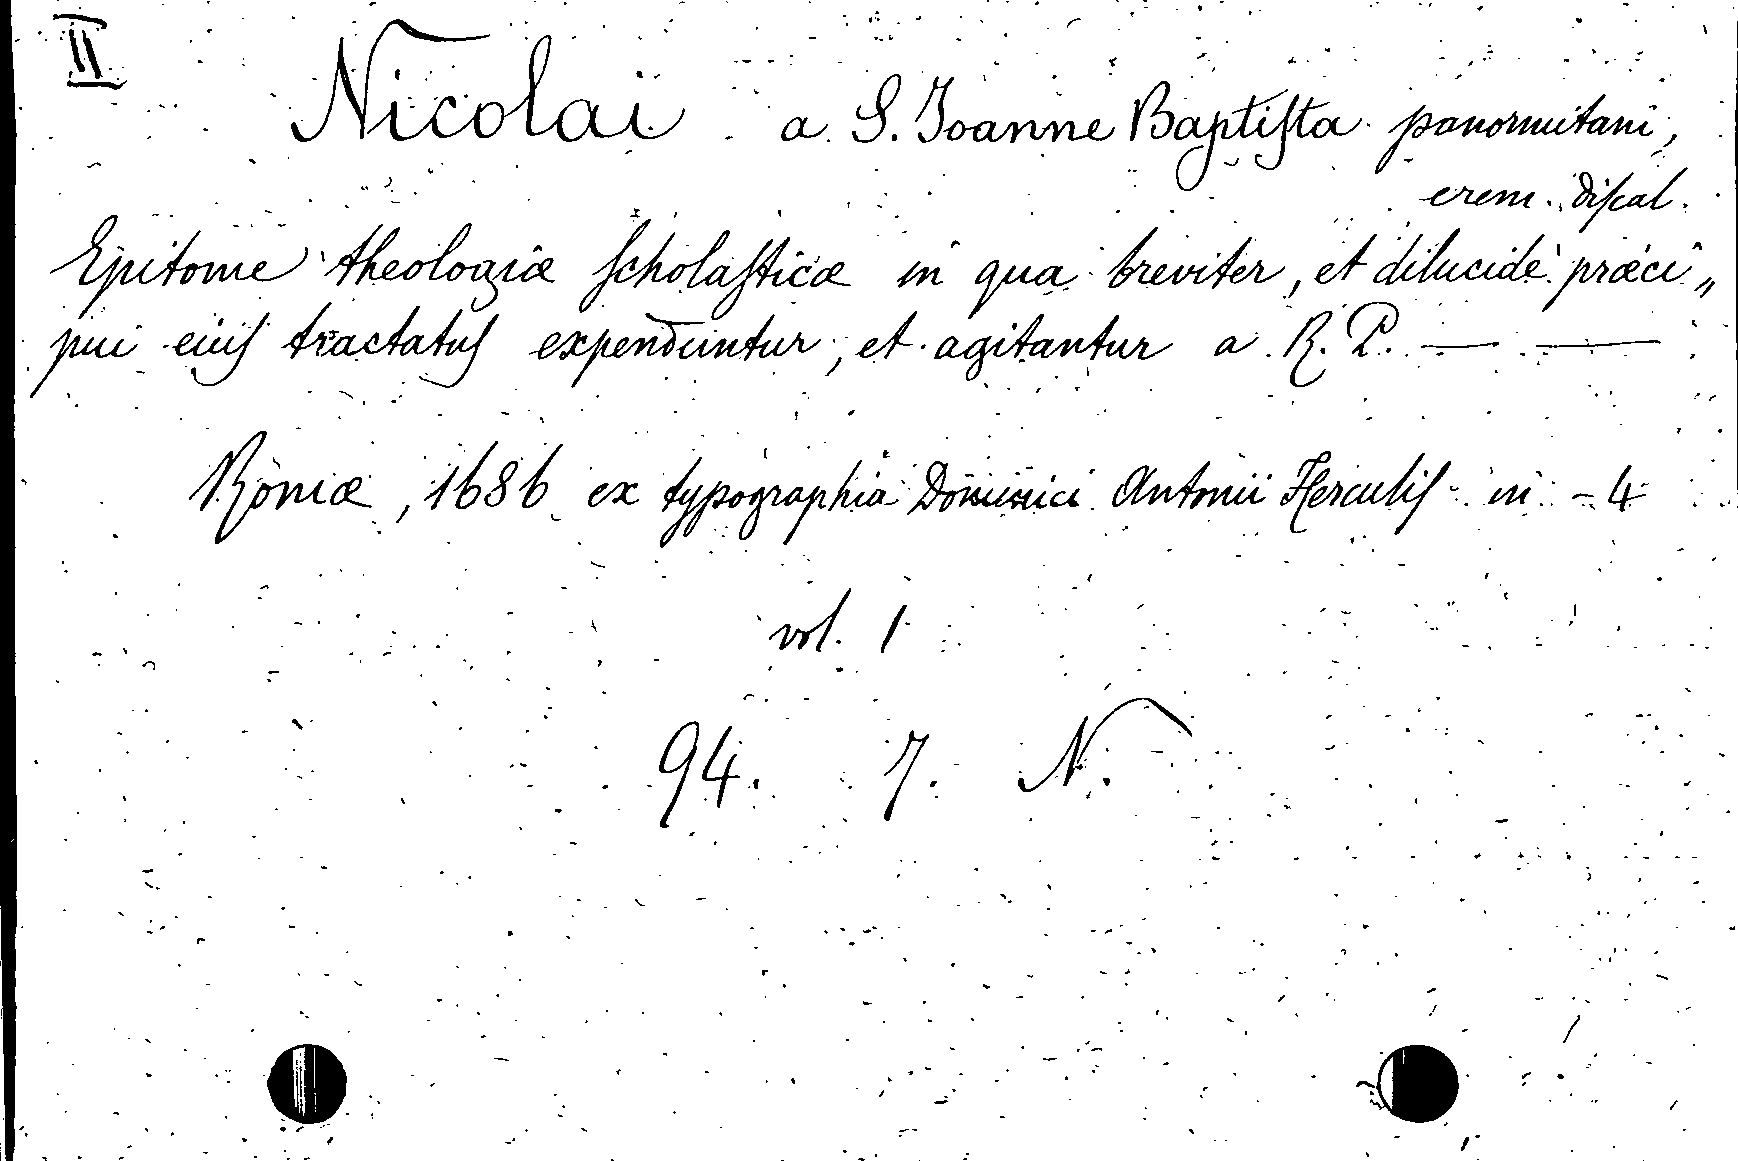 II
Nicolai a S. Joanne Baptiſta panormitani,
erem. diſcal.
Epitome theologiæ ſcholaſticæ in qua breviter, et dilucidè præci„
pui eiuſ tractatuſ expenduntur, et agitantur a R. P. — —
Romæ, 1686 ex typographia Dominici Antonii Herculiſ in - 4
vol. 1
94. 7. N.